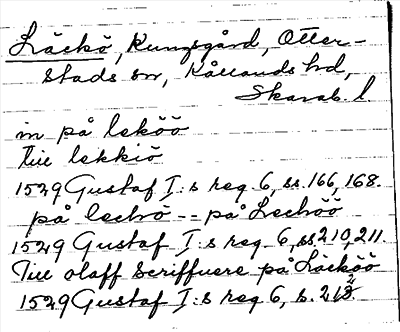 Läckö, Kungsgård, Otter-
stads sn, Kållands hd,
Skarab. l.
in på leköö
tiil lekkiö
1529 Gustaf I:s reg. 6, ss. 166, 168.
på lechö -- på Lechöö
1529 Gustaf I:s reg. 6, ss 210, 211.
Till olaff scriffuere på Läcköö
1529 Gustaf I:s reg 6, s.